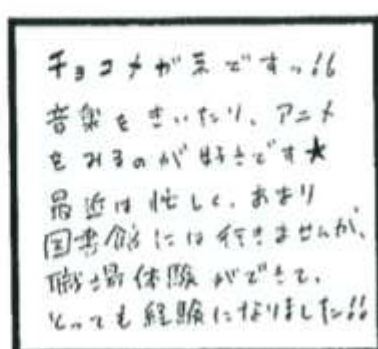 チョコメが末ですっ!!
音楽をきいたり、アニメ
をみるのが好きです★
最近は忙しく、あまり
図書館には行きませんが、
職場体験ができて、
とっても経験になりました!!